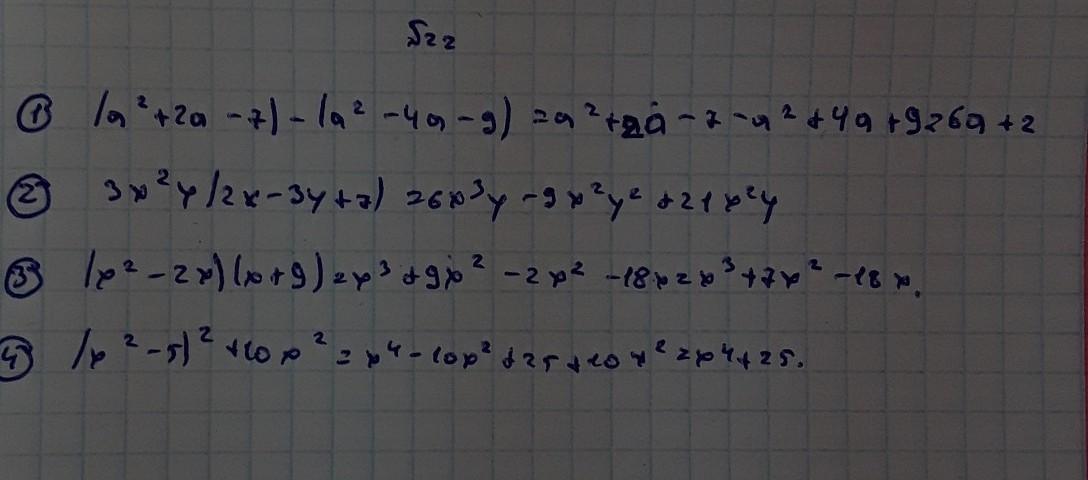 522
① (a² + 2a - 7) - (a² - 4a - 9) = a² + 2a - 7 - a² + 4a + 9 = 6a + 2
② 3x²y (2x - 3y + 7) = 6x³y - 9x²y² + 21x²y
③ (x² - 2x)(x + 9) = x³ + 9x² - 2x² - 18x = x³ + 7x² - 18x.
④ (x² - 5)² + 10x² = x⁴ - 10x² + 25 + 10x² = x⁴ + 25.